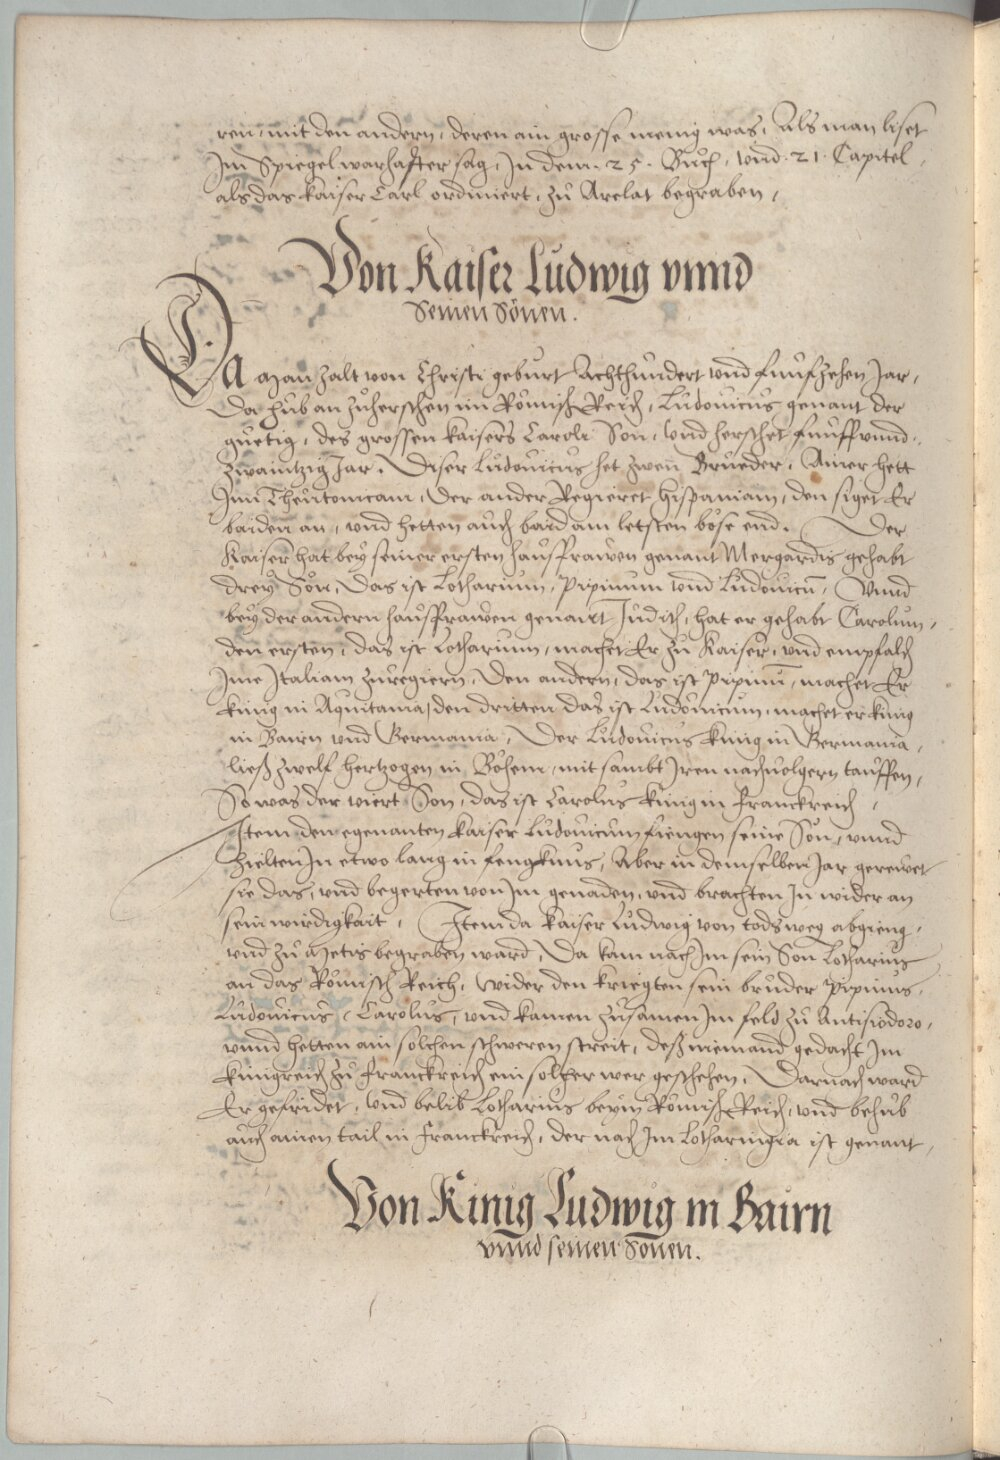 ren, mit den andern, deren ain grosse menig was, Als man liset
Im Spiegel warhaffter sag, In dem .25. Buͦch, vnd .21. Capitel,
als das kaiser Carl ordiniert, zuͦ Arelat begraben,
Von Kaiser Ludwig vnnd
Seinen Sönen.
Da man zalt von Christi geburt Achthundert vnd funfzehen Jar,
Da huͦb an zuͦherschen im Römisch Reich, Ludouicus genant der
guetig, des grossen kaisers Caroli Son, vnd herschet funffvnnd,
zwaintzig Jar. Diser Ludouicus het zwen Brueder, Ainer hett
Inn Theutonicam, Der ander Regieret Hispaniam, den siget Er
baiden an, vnd hetten auch baid am letsten böse end. Der
Kaiser hat bey seiner ersten haußfrawen genant Mergardis gehabt
drey Sön, Das ist Lotharium, Pipinum vnd Ludouicū, Vnnd
bey der andern haußfrawen genant Judith, hat er gehabt Carolum,
den ersten, das ist Lotharium, machet Er zu Kaiser, vnd empfalch
Ime Italiam zuregiern, Den andern, das ist Pipinū, machet Er
künig in Aquitania, den dritten das ist Ludouicum, machet er künig
in Bairn vnd Germania, Der Ludouicus künig in Germania,
ließ zwelf hertzogen in Böhem, mit sambt Iren nachuolgern tauffen,
So was der viert Son, das ist Carolus künig in Franckreich,
Item den egenanten kaiser Ludouicum fiengen seine Sön, vnnd
hielten In etwo lang in fengknus, Aber in demselben Jar gerewet
sie das, vnd begerten von Im genaden, vnd brachten In wider an
sein wirdigkait, Item da kaiser Ludwig von tods weg abgieng,
vnd zu Metis begraben ward, Da kam nach Im sein Son Lotharius
an das Römisch Reich, Wider den kriegten sein bruder Pipinus,
Ludouicus, Carolus, vnd kamen zusamen Im feld zu Antisiodoro,
vnnd hetten ain solchen schweren streit, deß niemand gedacht Im
künigreich zu Franckreich ein solcher wer geschehen, Darnach ward
Er gefridet, vnd belib Lotharius beym Römisch Reich, vnd behub
auch ainen tail in Franckreich, der nach Im Lotharingia ist genant,
Von Kinig Ludwig in Bairn
vnnd seinen Sonen.